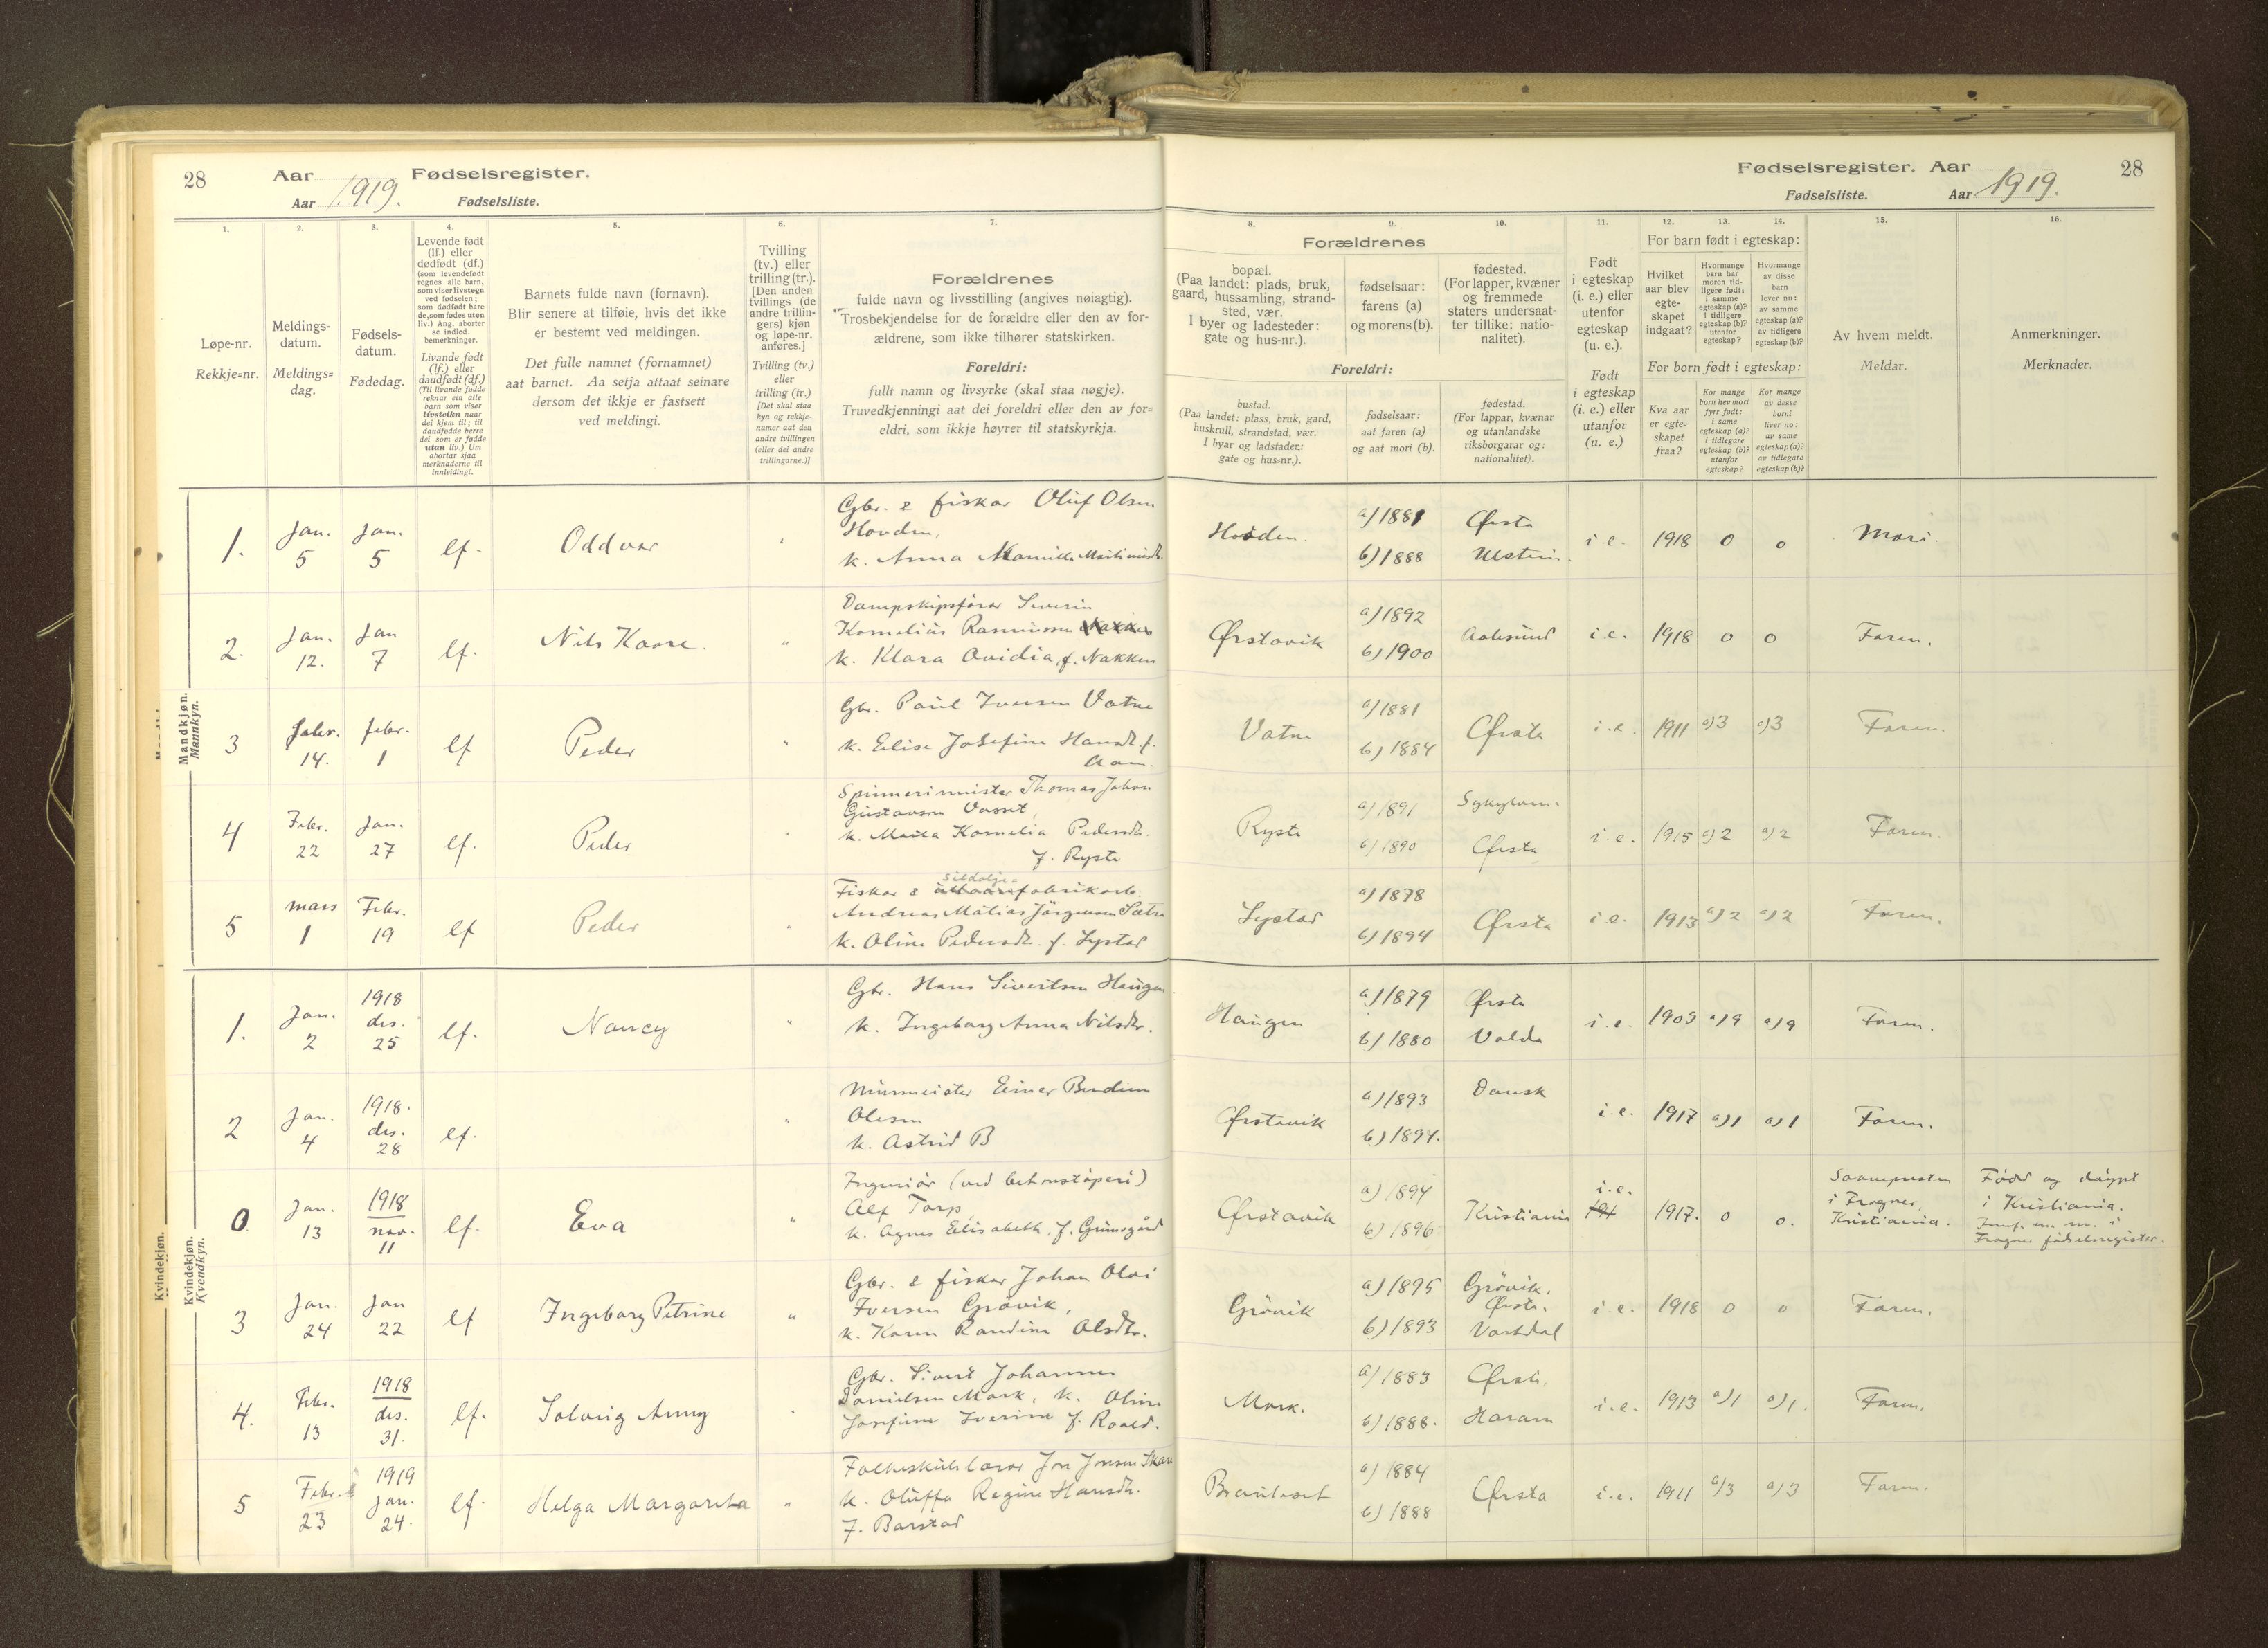 28 Aar Fødselsregister.
Aar 1919. Fødselsliste.
Fødselsregister. Aar 28
Fødselsliste. Aar 1919.
1.
Løpe-nr.
Rekkje=nr.
2.
Meldings-
datum.
Meldings=
dag.
3.
Fødsels-
datum.
Fødedag.
4.
Levende født
(lf.) eller
dødfødt (df.)
(som levendefødt
regnes alle barn,
som viser livstegn
ved fødselen;
som dødfødt bare
de, som fødes uten
liv.) Ang. aborter
se indled.
bemerkninger.
Livande født
(lf.) eller
daudfødt (df.)
(Til livande fødde
reknar ein alle
barn som viser
livsteikn naar
dei kjem til; til
daudfødde berre
dei som er fødde
utan liv.) Um
abortar sjaa
merknaderne til
innleidingi.
5.
Barnets fulde navn (fornavn).
Blir senere at tilføie, hvis det ikke
er bestemt ved meldingen.
Det fulle namnet (fornamnet)
aat barnet. Aa setja attaat seinare
dersom det ikkje er fastsett
ved meldingi.
6.
Tvilling
(tv.) eller
trilling (tr.).
[Den anden
tvillings (de
andre trillin-
gers) kjøn
og løpe-nr.
anføres.]
Tvilling (tv.)
eller
trilling (tr.)
[Det skal staa
kyn og rekkje-
numer aat den
andre tvillingen
(eller dei andre
trillingarne.)]
7.
Forældrenes
fulde navn og livsstilling (angives nøiagtig).
Trosbekjendelse for de forældre eller den av for-
ældrene, som ikke tilhører statskirken.
Foreldri:
fullt namn og livsyrke (skal staa nøgje).
Truvedkjenningi aat dei foreldri eller den av for=
eldri, som ikkje høyrer til statskyrkja.
Forældrenes
8.
bopæl.
(Paa landet: plads, bruk,
gaard, hussamling, strand-
sted, vær.
I byer og ladesteder:
gate og hus-nr.).
9.
fødselsaar:
farens (a)
og morens (b).
10.
fødested.
(For lapper, kvæner
og fremmede
staters undersaat-
ter tillike: natio-
nalitet).
Foreldri:
bustad.
(Paa landet: plass, bruk, gard,
huskrull, strandstad, vær.
I byar og ladstader:
gate og hus=nr.).
fødselsaar:
aat faren (a)
og aat mori (b).
fødestad.
(For lappar, kvænar
og utanlandske
riksborgarar og:
nationalitet).
11.
Født
i egteskap
(i. e.) eller
utenfor
egteskap
(u. e.).
Født
i egteskap
(i. e.) eller
utanfor
(u. e.)
12. 13. 14.
For barn født i egteskap:
Hvilket
aar blev
egte-
skapet
indgaat?
Hvormange
barn har
moren tid-
ligere født:
i samme
egteskap (a)?
i tidligere
egteskap (b)?
utenfor
egteskap?
Hvormange
av disse
barn
lever nu:
av samme
egteskap (a)?
av tidligere
egteskap (b)?
For born født i egteskap:
Kva aar
er egte=
skapet
fraa?
Kor mange
born hev mori
fyrr født:
i same
egteskap (a)?
i tidlegare
egteskap (b)?
utanfor
egteskap?
Kor mange
av desse
borni
liver no:
av same
egteskap (a)?
av tidlegare
egteskap (b)?
15.
Av hvem meldt.
Meldar.
16.
Anmerkninger.
Merknader.
Mandkjøn.
Mannkyn.
1. Jan. 5 Jan. 5 lf. Oddvar
Gbr. & fiskar Oluf Olsen
Hovden,
k. Anna Kamilla Martinusdtr.
Hovden. a) 1881 b) 1888 Ørsta Ulstein. i.e. 1918 0 0 Mori.
2. Jan. 12. Jan 7 lf. Nils Kaare. "
Dampskipsförar Severin
Kornelius Rasmussen Nakken
k. Klara Ovidia f. Nakken
Ørstavik a) 1892 b) 1900 Aalesund i.e. 1918 0 0 Faren.
3 Febr. 14. Febr. 1 lf Peder "
Gbr. Paul Iversen Vatne
k. Elise Josefine Hansdtr. f.
Aam.
Vatne a) 1881 b) 1884 Ørsta i.e. 1911 a) 3 a) 3 Faren.
4 Febr. 22 Jan. 27 lf. Peder
Spinnerimeister Thomas Johan
Gustavsen Vasset,
k. Kornelia Pedersdtr.
f. Ryste
Ryste a) 1891 b) 1890 Sykylven. Ørsta i.e. 1915 a) 2 a) 2 Faren.
5 Mars 1 Febr. 19 lf Peder
Fiskar & sildolje-fabrikarb.
Andreas Matias Jörgensen Sætre
k. Oline Pedersdtr. f. Lystad
Lystad a) 1878 b) 1894 Ørsta i.e. 1913 a) 2 a) 2 Faren.
Kvindekjøn.
Kvendkyn.
1. Jan. 2 1918 des. 25 lf. Nancy "
Gbr. Hans Sivertsen Haugen
k. Ingeborg Anna Nilsdtr.
Haugen a) 1879 b) 1880 Ørsta Volda i.e. 1903 a) 9 a) 9 Faren.
2 Jan. 4 1918. des. 28 lf. "
Murmeister Einer
Olesen
k. Astrid B
Ørstavik a) 1893 b) 1894. Dansk i.e. 1917 a) 1 a) 1 Faren.
0 Jan. 13 1918 nov. 11 lf. Eva "
Ingeniör (ved betongstöperi)
Alf Torp,
k. Agnes Elisabeth, f. Grimsgård
Ørstavik a) 1894 b) 1896 Kristiania i.e. 1917. 0 0.
Soknepresten
i Frogner,
Kristiania.
Född og döypt
i Kristiania.
Innf. m. m. i
Frogner födselsregister.
3 Jan. 24 Jan 22 lf Ingeborg Petrine "
Gbr. & fiskar Johan Olai
Iversen Grövik,
k. Karen Randine Olsdtr.
Grövik a) 1895 b) 1893 Grövik, Ørsta. Vartdal i.e. 1918 0 0 Faren.
4. Febr. 13 1918 des. 31. lf. Solveig Anny
Gbr. Sivert Johannes
Danielsen Mork, k. Oline
Josefine Iverine f. Roald.
Mork. a) 1883 b) 1888. Ørsta, Haram i.e. 1913 a) 1 a) 1. Faren.
5 Febr. 23 1919 Jan. 24. lf. Helga Margareta "
Folkeskulelærar Jon Jonsen Skare
k. Oluffa Regine Hansdtr.
f. Barstad
Brauteset a) 1884 b) 1888 Ørsta i.e. 1911 a) 3 a) 3 Faren.